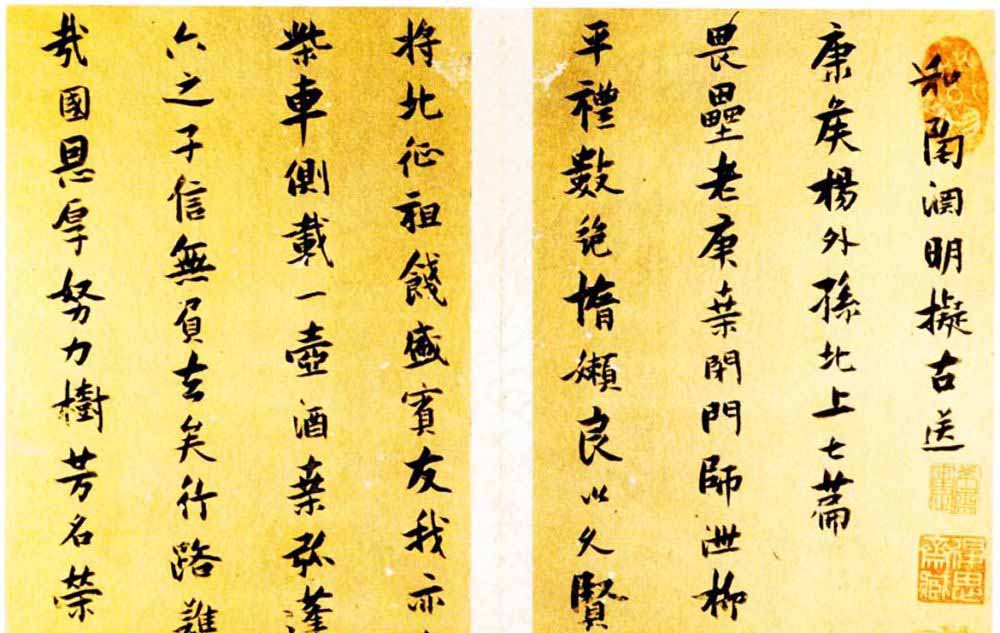 和匋渊明擬古送
康侯楊外孫北上七篇
畏壘老庚桒閇門師泄柳
平禮數絶惰嬾良以久賢
将北征祖餞盛賓友我亦
柴車側載一壺酒桒弧蓬
六之子信無負去矣行路誰
哉國恩厚努力樹芳名榮